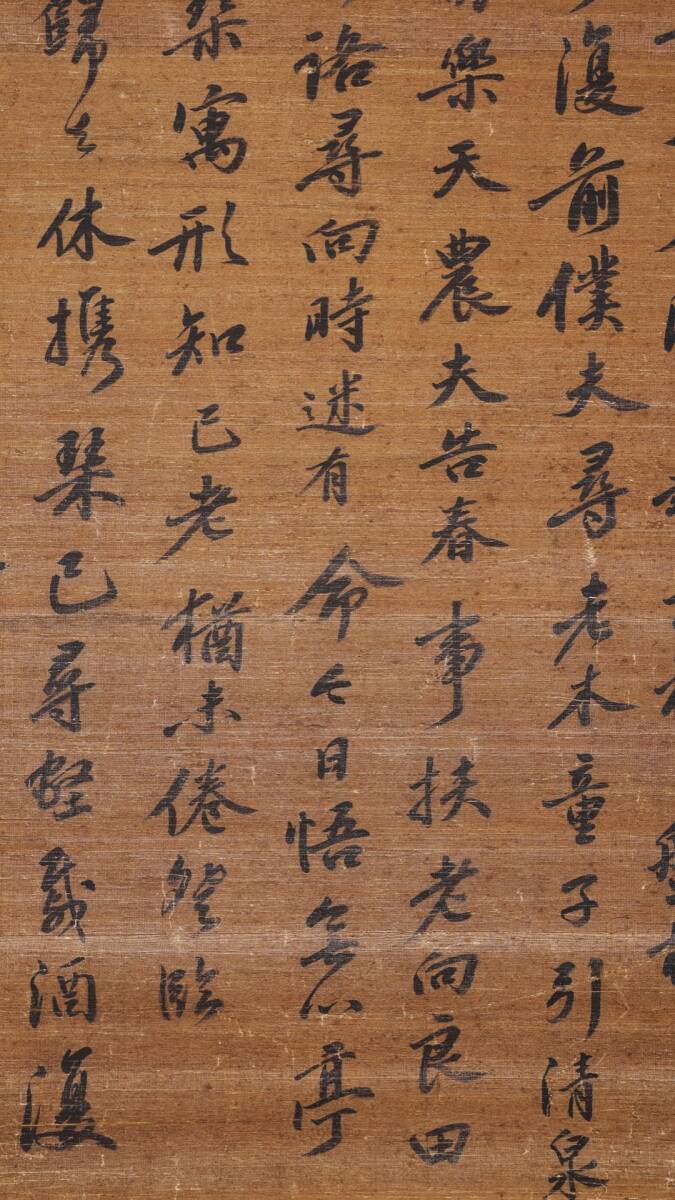 復前僕夫尋老木童子引清泉
樂天農夫告春事扶老向良田
路尋向時迷有命今日悟無心亭
琴寓形知已老猶未倦登臨
歸去休攜琴已尋壑載酒復